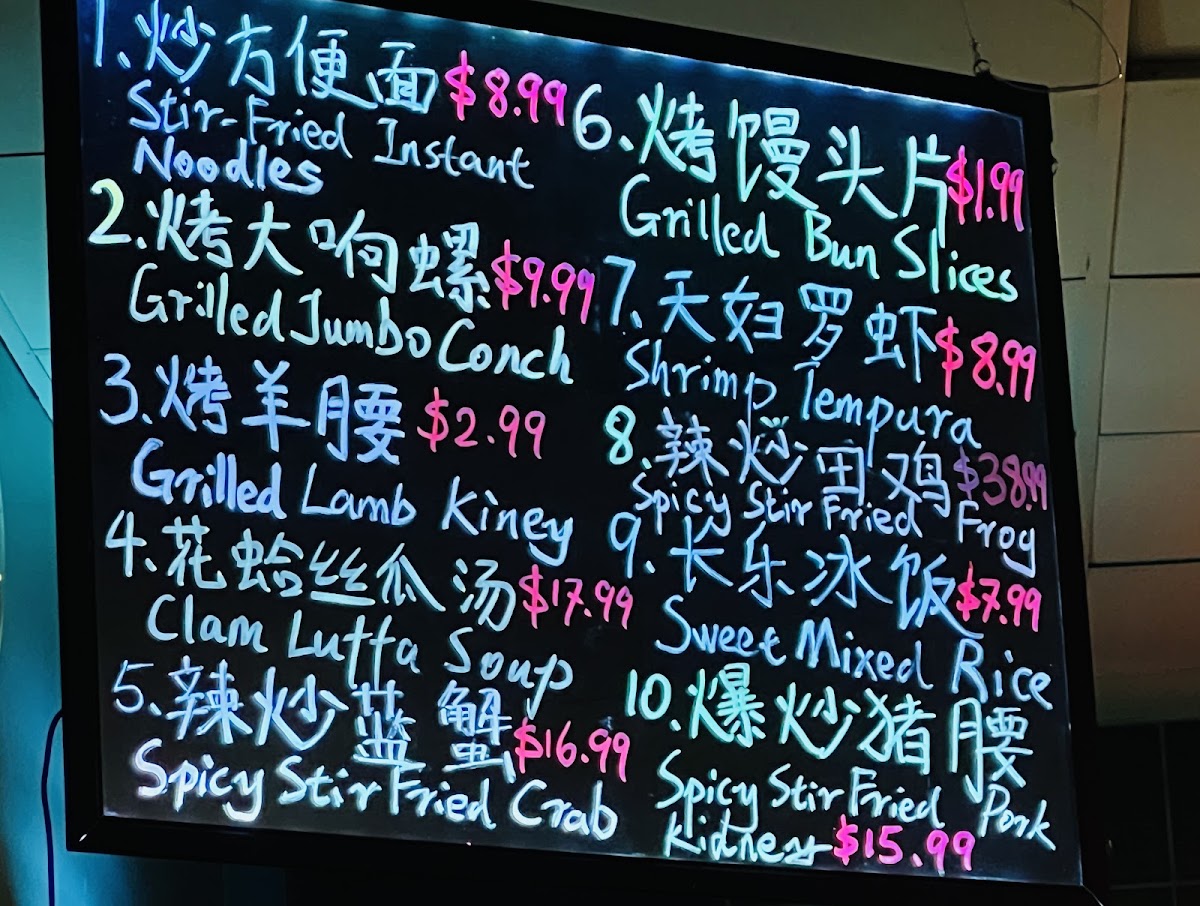 1.炒方便面 $8.99
Stir-Fried Instant
Noodles
2.烤大响螺 $9.99
Grilled Jumbo Conch
3.烤羊腰 $2.99
Grilled Lamb Kiney
4.花蛤丝瓜汤 $17.99
Clam Luffa Soup
5.辣炒蓝蟹 $16.99
Spicy Stir Fried Crab
6.烤馒头片 $1.99
Grilled Bun Slices
7.天妇罗虾 $8.99
Shrimp Tempura
8.辣炒田鸡 $38.99
Spicy Stir Fried Frog
9.长乐冰饭 $7.99
Sweet Mixed Rice
10.爆炒猪腰
Spicy Stir Fried Pork
Kidney $15.99